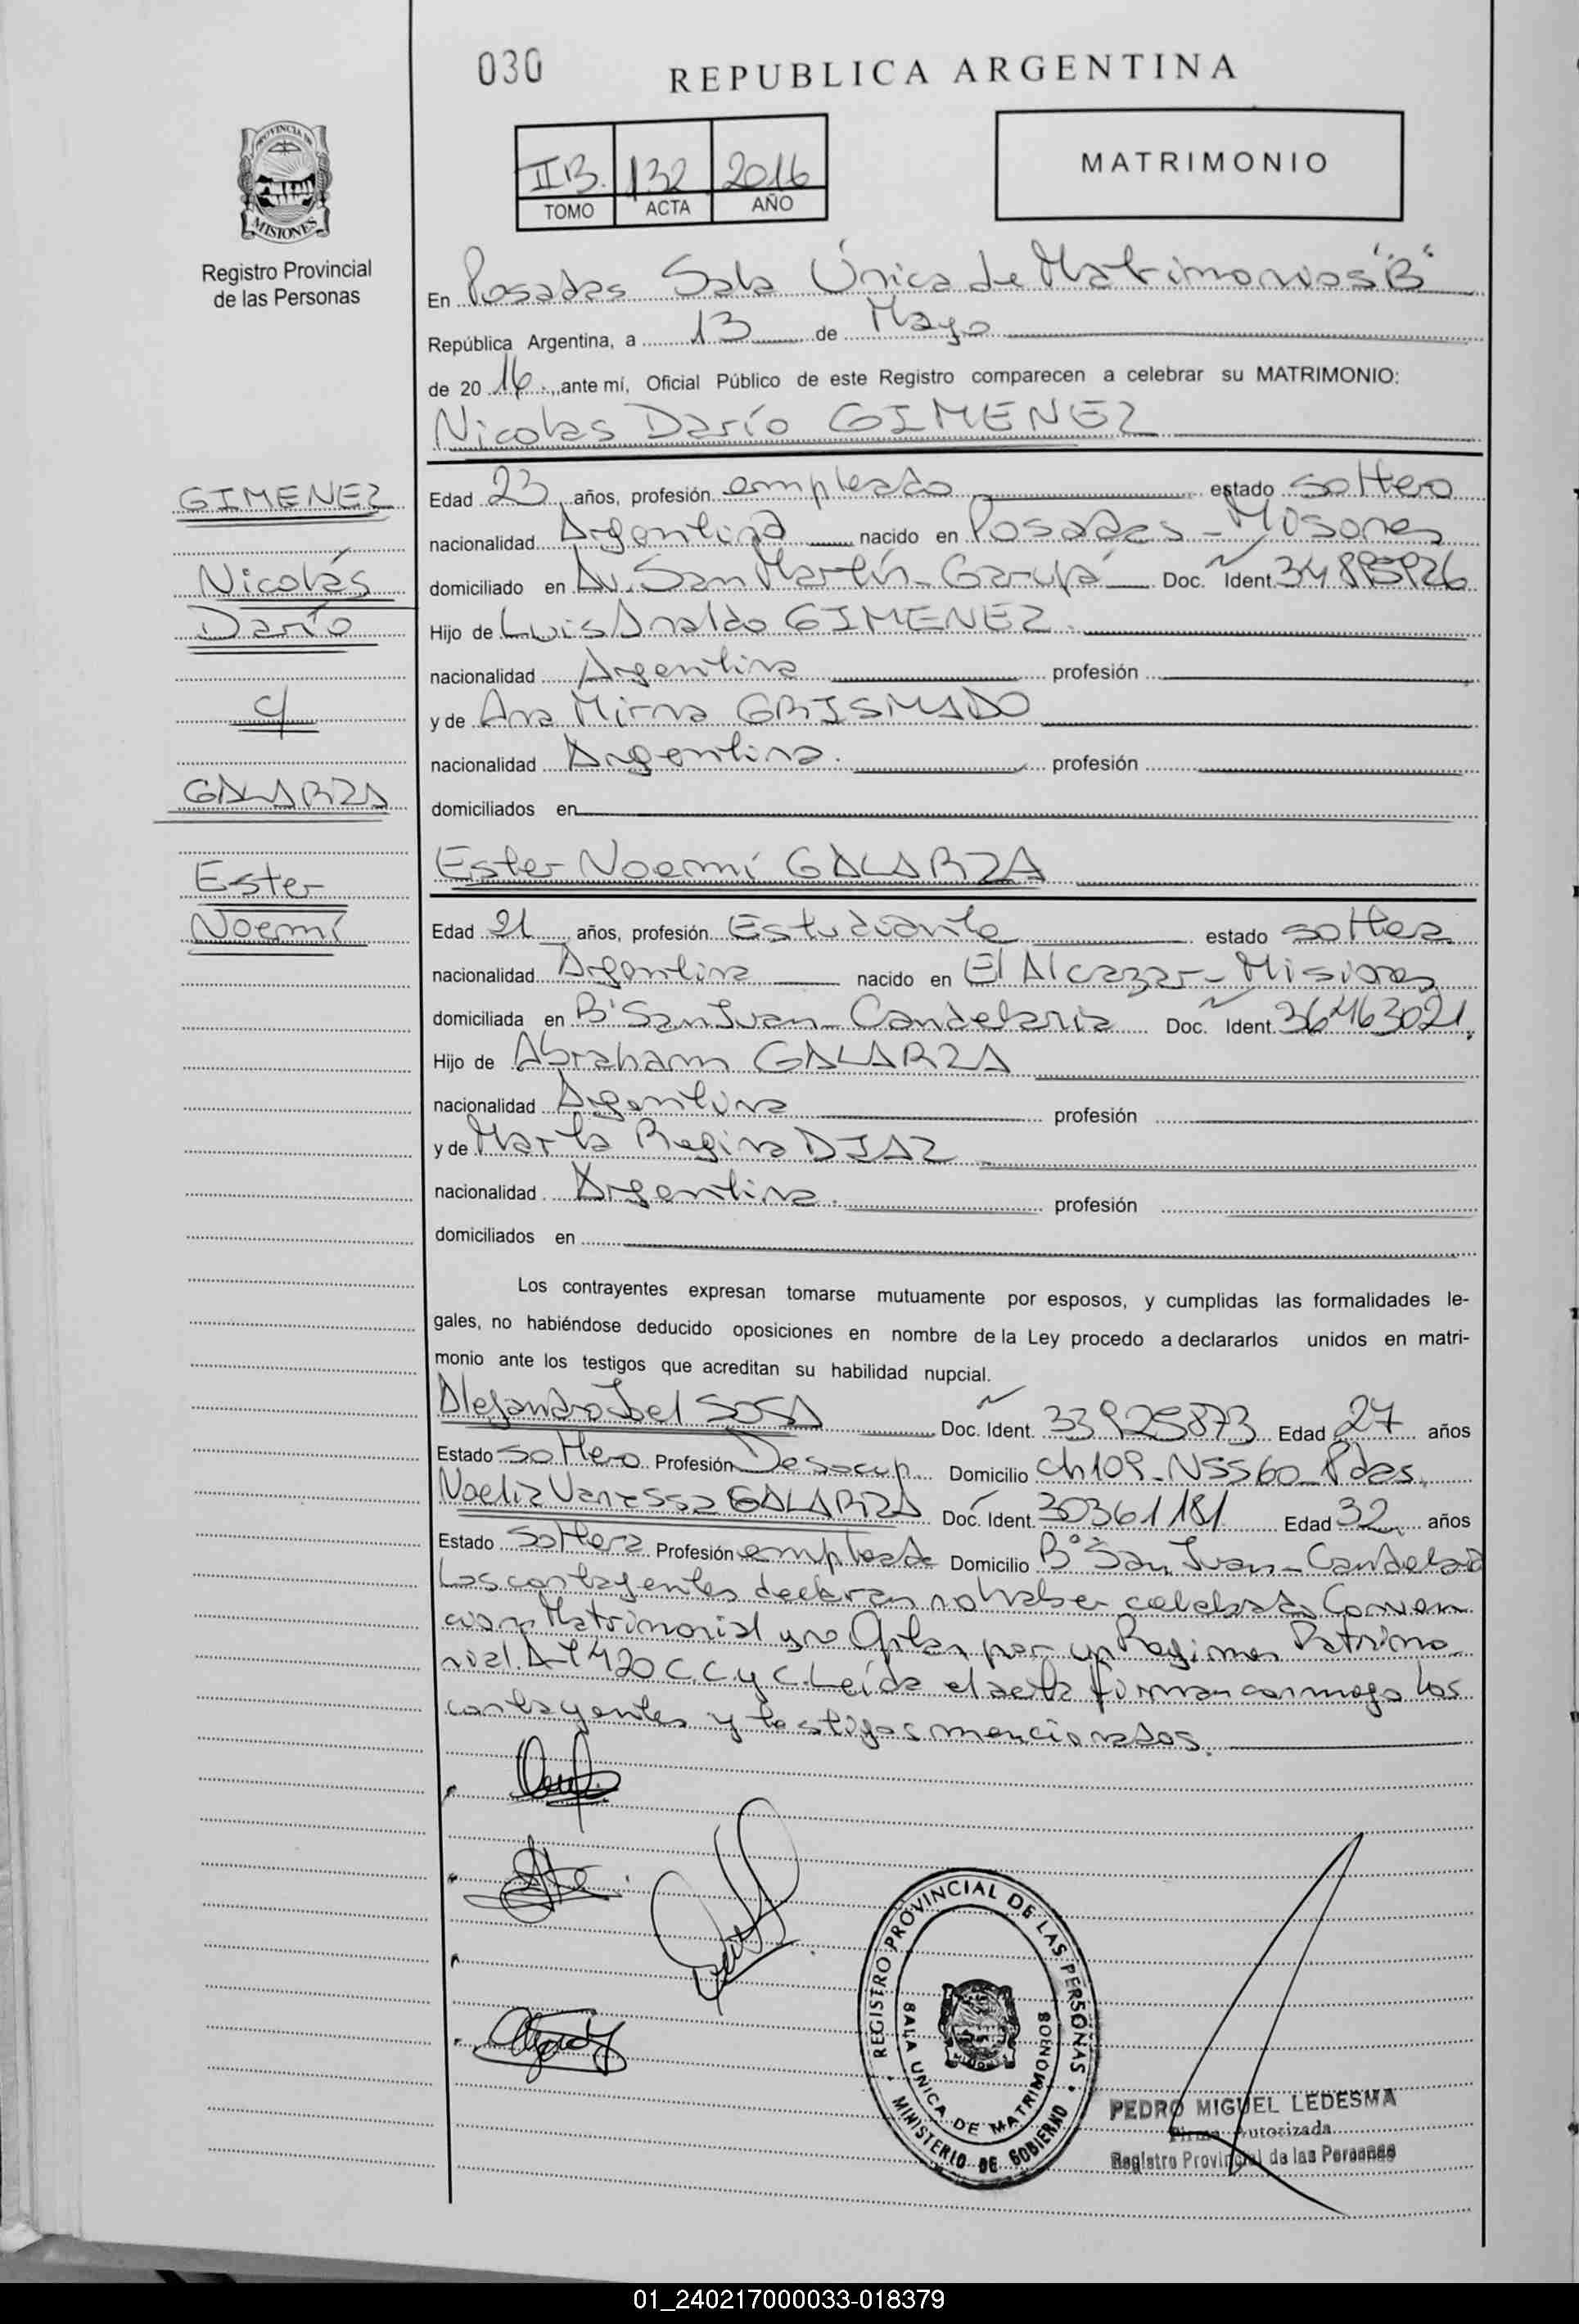 030
REPUBLICA ARGENTINA
PROVINCIA DE
MISIONES
Registro Provincial
de las Personas
IIB. 132 2016
TOMO ACTA AÑO
MATRIMONIO
En Posadas Sala Única de Matrimonios "B"
República Argentina, a 13 de Mayo
de 2016, ante mí, Oficial Público de este Registro comparecen a celebrar su MATRIMONIO:
Nicolas Darío GIMENEZ
GIMENEZ
Nicolás
Darío
c/
GALARZA
Ester
Noemí
Edad 23 años, profesión empleado estado soltero
nacionalidad Argentina nacido en Posadas - Misiones
domiciliado en Av. San Martín - Garupá Doc. Ident.
Hijo de Luis Analdo GIMENEZ.
nacionalidad Argentina profesión
y de Ana Mirna GRISMADO
nacionalidad Argentina. profesión
domiciliados en
Ester Noemí GALARZA
Edad 21 años, profesión Estudiante estado soltera
nacionalidad Argentina nacido en El Alcazar - Misiones
domiciliada en B° San Juan - Candelaria Doc. Ident. 36463021.
Hijo de Abraham GALARZA
nacionalidad Argentina profesión
y de Marta Regina DIAZ
nacionalidad Argentina. profesión
domiciliados en
Los contrayentes expresan tomarse mutuamente por esposos, y cumplidas las formalidades le-
gales, no habiéndose deducido oposiciones en nombre de la Ley procedo a declararlos unidos en matri-
monio ante los testigos que acreditan su habilidad nupcial.
Alejandro Joel SOSA Doc. Ident. 33925873 Edad 27 años
Estado soltero Profesión Desocup. Domicilio Ch109 - N5560 - Pdas.
Noelia Vanessa GALARZA Doc. Ident. 30361181 Edad 32 años
Estado soltera Profesión empleada Domicilio B° San Juan - Candelaria
Los contrayentes declaran no haber celebrado Conven
cion Matrimonial y no Optan por un Regimen Patrimo_
nial. Art 420 C.C. y C. Leída el acta firman conmigo los
contrayentes y testigos mencionados.
REGISTRO PROVINCIAL DE LAS PERSONAS
SALA UNICA DE MATRIMONIOS
MINISTERIO DE GOBIERNO
PEDRO MIGUEL LEDESMA
Firma Autorizada
Registro Provincial de las Personas
01_240217000033-018379